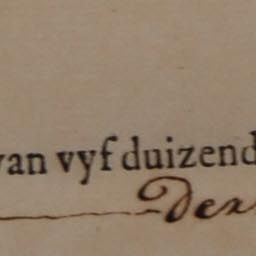 van vyf duizend